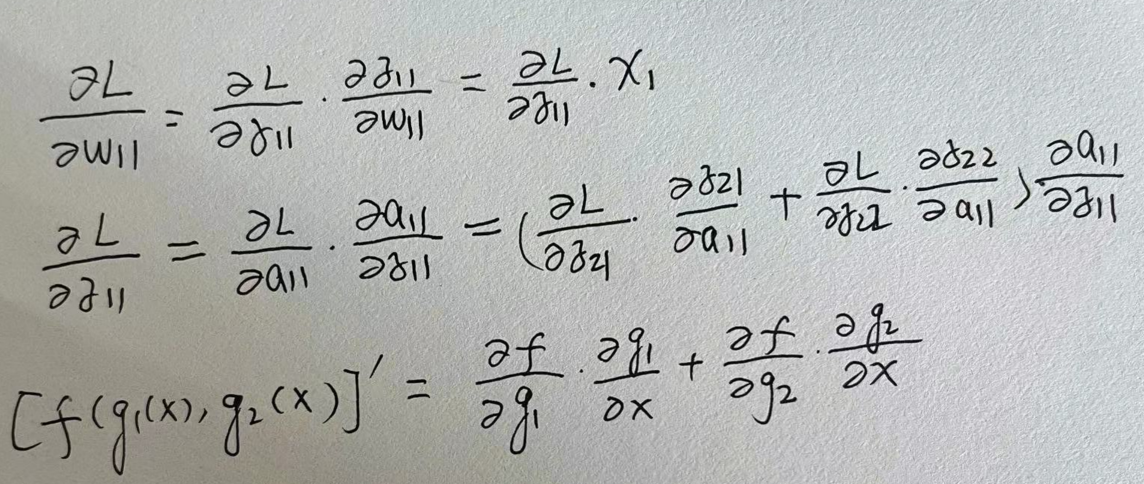 ∂L/∂w11 = ∂L/∂z11 · ∂z11/∂w11 = ∂L/∂z11 · x₁
∂L/∂z11 = ∂L/∂a11 · ∂a11/∂z11 = (∂L/∂z21 · ∂z21/∂a11 + ∂L/∂z22 · ∂z22/∂a11) ∂a11/∂z11
[f(g₁(x), g₂(x)]′ = ∂f/∂g₁ · ∂g₁/∂x + ∂f/∂g₂ · ∂g₂/∂x